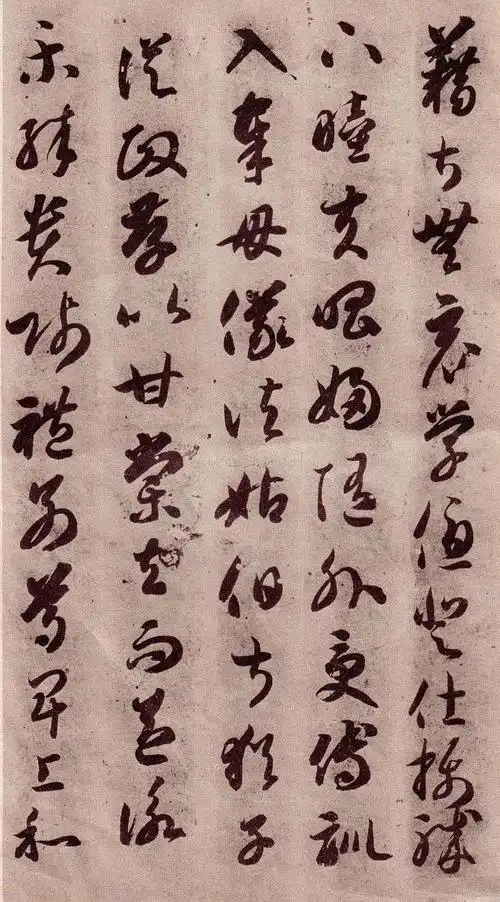 藉甚無竟學優登仕攝職
下睦夫唱婦隨外受傅訓
入奉母儀諸姑伯叔猶子
從政存以甘棠去而益詠
樂殊貴賤禮別尊卑上和